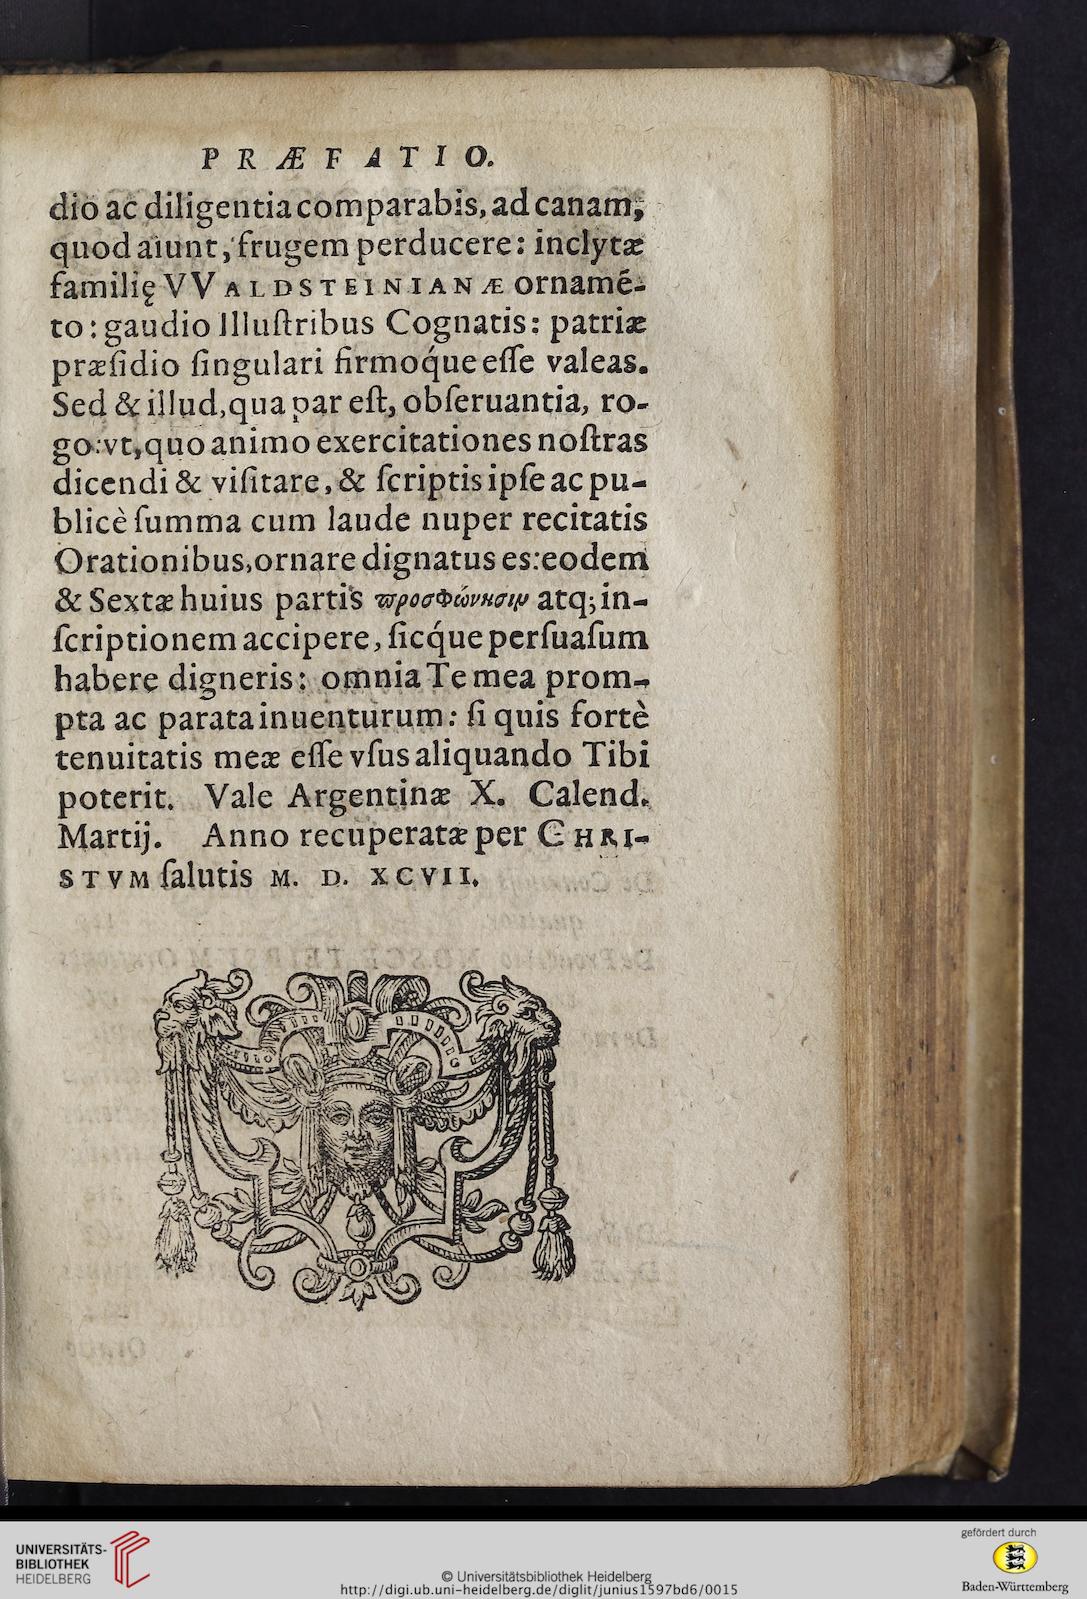 PRÆFATIO.
dio ac diligentia comparabis, ad canam,
quod aiunt, frugem perducere: inclytæ
familię VVALDSTEINIANÆ ornamē-
to: gaudio Illuſtribus Cognatis: patriæ
præſidio ſingulari firmoq́ue eſſe valeas.
Sed & illud, qua par eſt, obſeruantia, ro-
go: vt, quo animo exercitationes noſtras
dicendi & viſitare, & ſcriptis ipſe ac pu-
blicè ſumma cum laude nuper recitatis
Orationibus, ornare dignatus es: eodem
& Sextæ huius partis ϖροσφώνησιν atq; in-
ſcriptionem accipere, ſicq́ue perſuaſum
habere digneris: omnia Te mea prom-
pta ac parata inuenturum: ſi quis fortè
tenuitatis meæ eſſe vſus aliquando Tibi
poterit. Vale Argentinæ X. Calend.
Martij. Anno recuperatæ per CHRI-
STVM ſalutis M. D. XCVII.
UNIVERSITÄTS-
BIBLIOTHEK
HEIDELBERG
© Universitätsbibliothek Heidelberg
http://digi.ub.uni-heidelberg.de/diglit/junius1597bd6/0015
gefördert durch
Baden-Württemberg